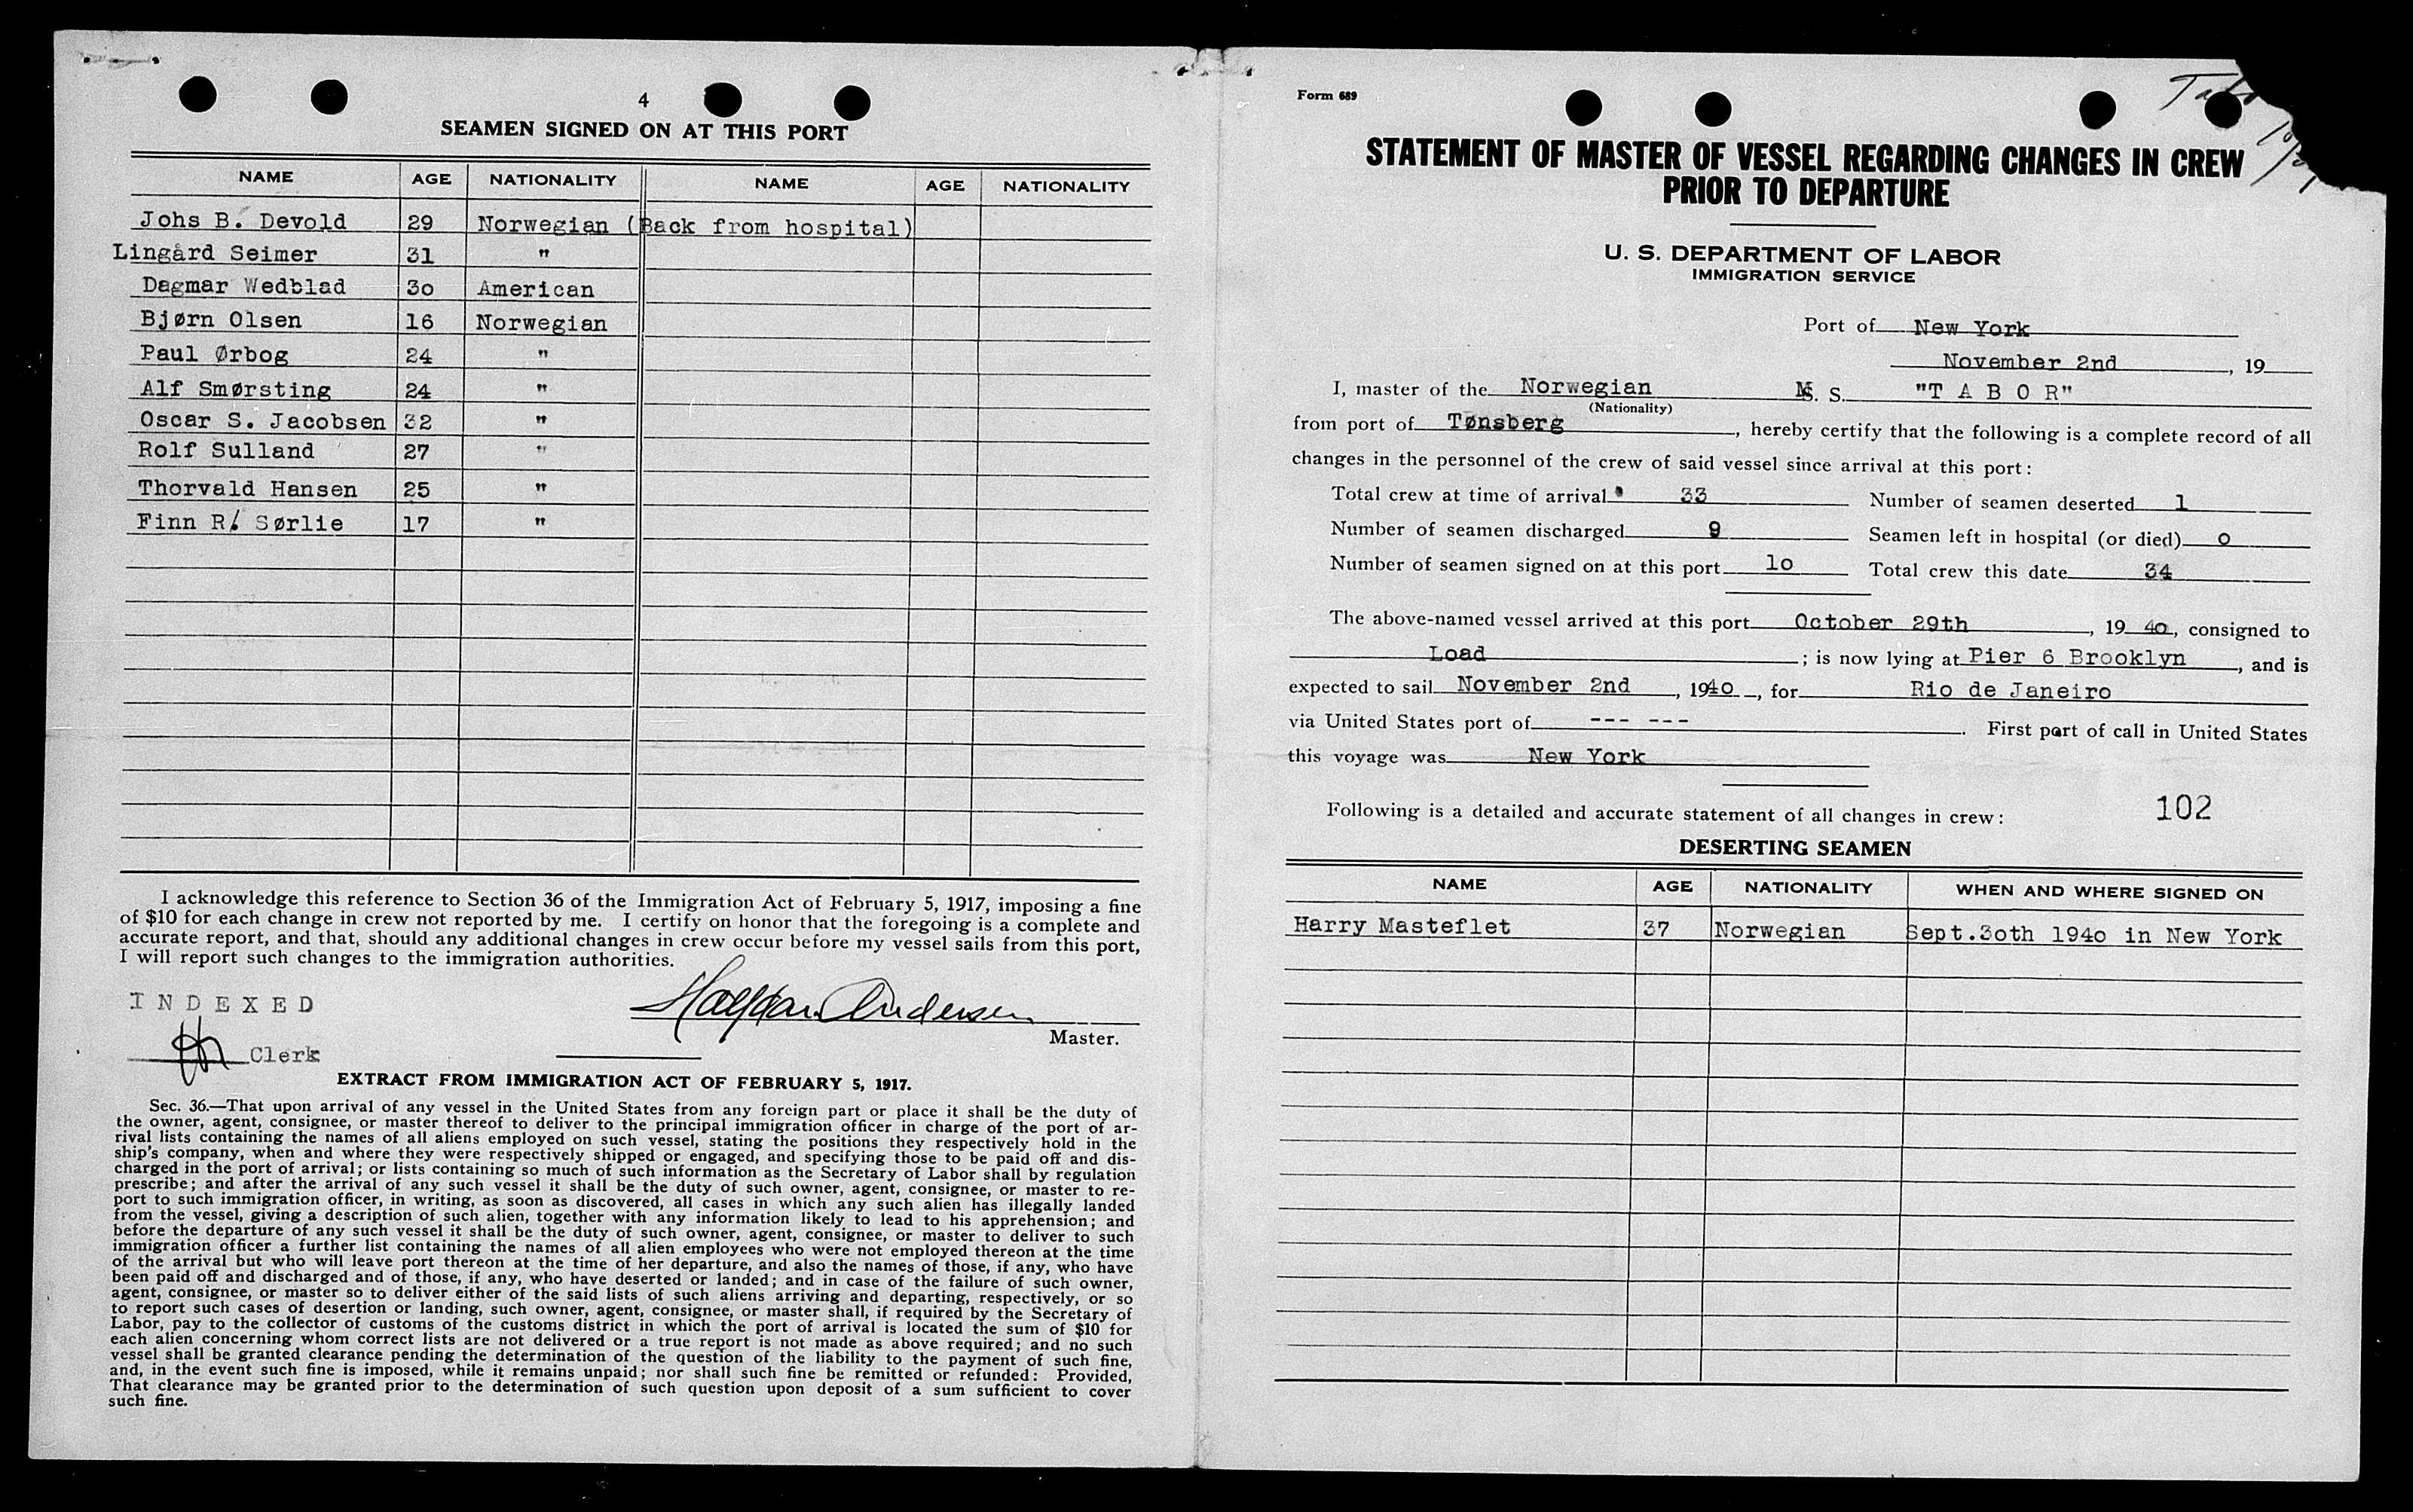 4
SEAMEN SIGNED ON AT THIS PORT
NAME AGE NATIONALITY NAME AGE NATIONALITY
Johs B. Devold 29 Norwegian (Back from hospital)
Lingård Seimer 31 "
Dagmar Wedblad 3o American
Bjørn Olsen 16 Norwegian
Paul Ørbog 24 "
Alf Smørsting 24 "
Oscar S. Jacobsen 32 "
Rolf Sulland 27 "
Thorvald Hansen 25 "
Finn R. Sørlie 17 "
I acknowledge this reference to Section 36 of the Immigration Act of February 5, 1917, imposing a fine
of $10 for each change in crew not reported by me. I certify on honor that the foregoing is a complete and
accurate report, and that, should any additional changes in crew occur before my vessel sails from this port,
I will report such changes to the immigration authorities.
INDEXED
Halfdan Andersen
Master.
Clerk
EXTRACT FROM IMMIGRATION ACT OF FEBRUARY 5, 1917.
Sec. 36.—That upon arrival of any vessel in the United States from any foreign part or place it shall be the duty of
the owner, agent, consignee, or master thereof to deliver to the principal immigration officer in charge of the port of ar-
rival lists containing the names of all aliens employed on such vessel, stating the positions they respectively hold in the
ship's company, when and where they were respectively shipped or engaged, and specifying those to be paid off and dis-
charged in the port of arrival; or lists containing so much of such information as the Secretary of Labor shall by regulation
prescribe; and after the arrival of any such vessel it shall be the duty of such owner, agent, consignee, or master to re-
port to such immigration officer, in writing, as soon as discovered, all cases in which any such alien has illegally landed
from the vessel, giving a description of such alien, together with any information likely to lead to his apprehension; and
before the departure of any such vessel it shall be the duty of such owner, agent, consignee, or master to deliver to such
immigration officer a further list containing the names of all alien employees who were not employed thereon at the time
of the arrival but who will leave port thereon at the time of her departure, and also the names of those, if any, who have
been paid off and discharged and of those, if any, who have deserted or landed; and in case of the failure of such owner,
agent, consignee, or master so to deliver either of the said lists of such aliens arriving and departing, respectively, or so
to report such cases of desertion or landing, such owner, agent, consignee, or master shall, if required by the Secretary of
Labor, pay to the collector of customs of the customs district in which the port of arrival is located the sum of $10 for
each alien concerning whom correct lists are not delivered or a true report is not made as above required; and no such
vessel shall be granted clearance pending the determination of the question of the liability to the payment of such fine,
and, in the event such fine is imposed, while it remains unpaid; nor shall such fine be remitted or refunded: Provided,
That clearance may be granted prior to the determination of such question upon deposit of a sum sufficient to cover
such fine.
Form 689
STATEMENT OF MASTER OF VESSEL REGARDING CHANGES IN CREW
PRIOR TO DEPARTURE
U. S. DEPARTMENT OF LABOR
IMMIGRATION SERVICE
Port of New York
November 2nd, 19
I, master of the Norwegian M. S. "T A B O R"
(Nationality)
from port of Tønsberg, hereby certify that the following is a complete record of all
changes in the personnel of the crew of said vessel since arrival at this port:
Total crew at time of arrival 33 Number of seamen deserted 1
Number of seamen discharged 9 Seamen left in hospital (or died) o
Number of seamen signed on at this port 1o Total crew this date 34
The above-named vessel arrived at this port October 29th, 19 4o, consigned to
Load; is now lying at Pier 6 Brooklyn, and is
expected to sail November 2nd, 194o, for Rio de Janeiro
via United States port of --- ---. First port of call in United States
this voyage was New York
Following is a detailed and accurate statement of all changes in crew: 102
DESERTING SEAMEN
NAME AGE NATIONALITY WHEN AND WHERE SIGNED ON
Harry Masteflet 37 Norwegian Sept.3oth 194o in New York